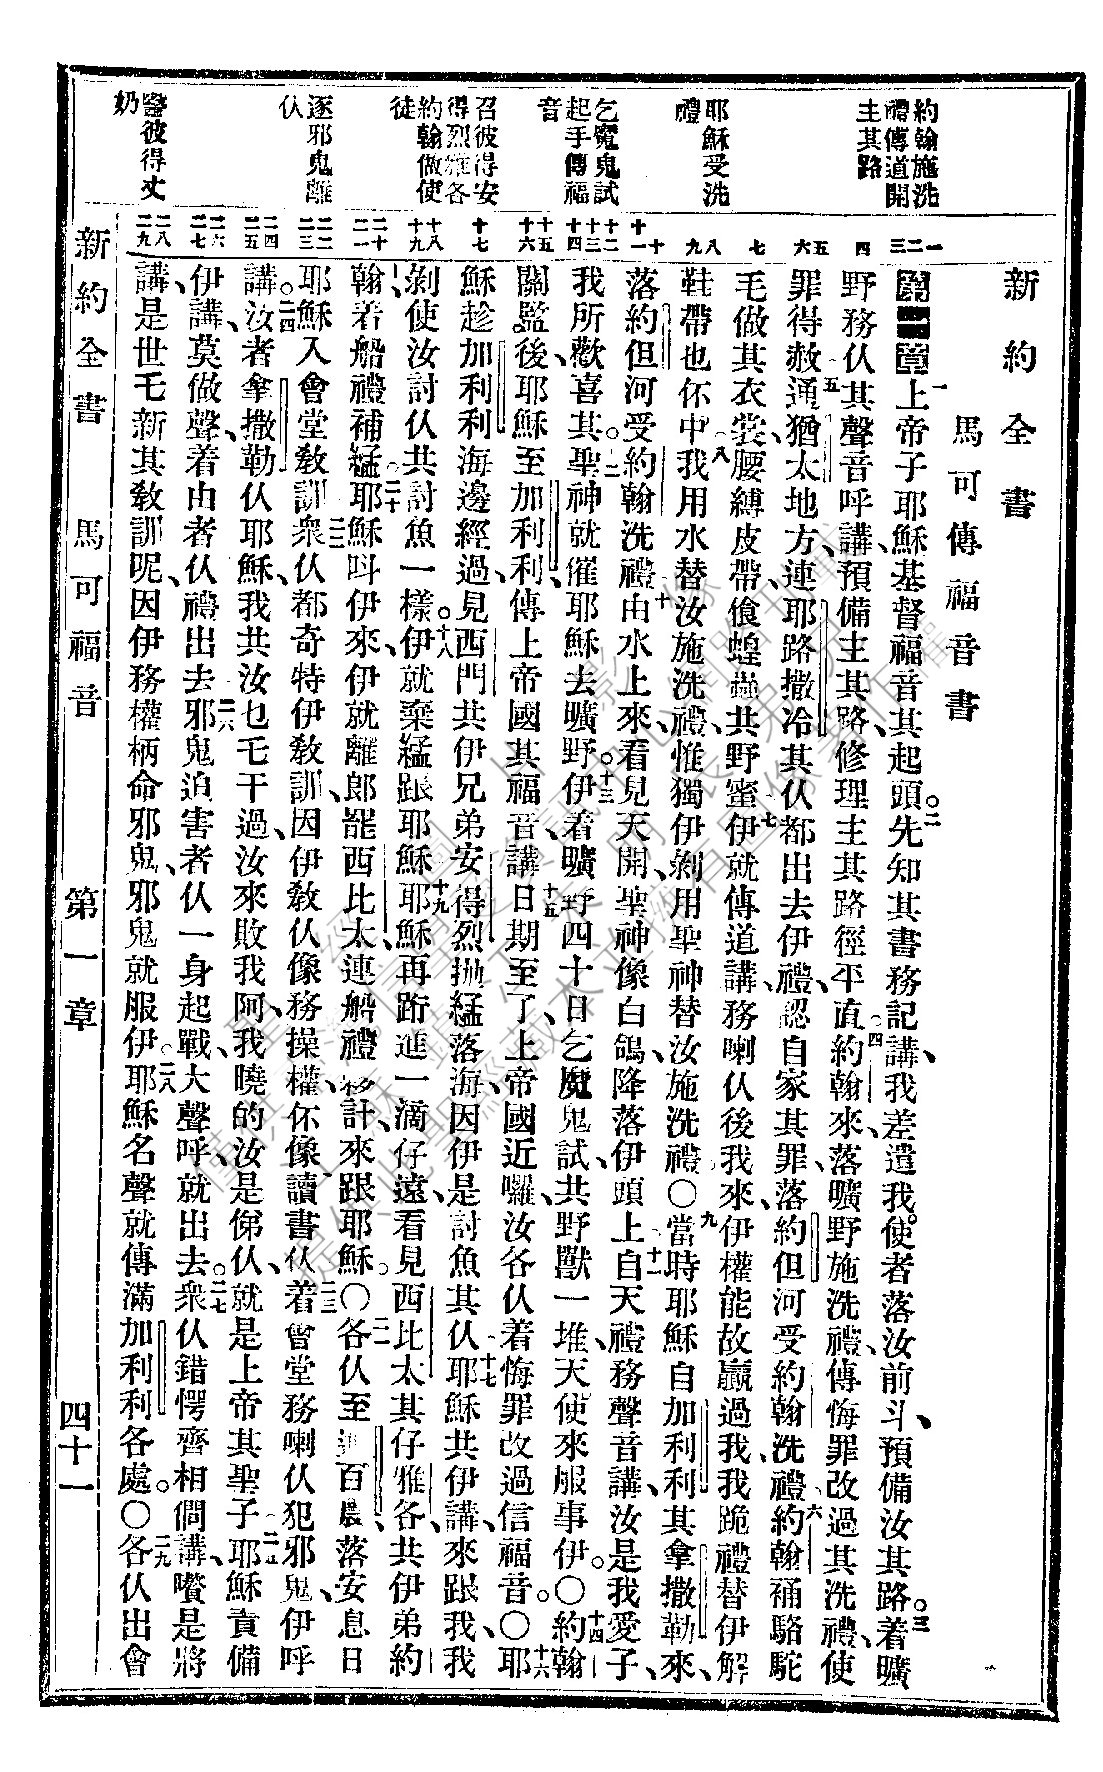 新約全書
馬可傳福音書
約翰施洗
禮傳道開
主其路
耶穌受洗
禮
乞魔鬼試
起手傳福
音
召彼得安
得烈雅各
約翰做使
徒
逐邪鬼離
仈
醫彼得丈
奶
一
二
三
四
五
六
七
八
九
十
十一
十二
十三
十四
十五
十六
十七
十八
十九
二十
二一
二二
二三
二四
二五
二六
二七
二八
二九
第一章一上帝子耶穌基督福音其起頭。二先知其書務記講、我差遣我使者落汝前斗、預備汝其路。三着曠
野務仈其聲音呼講、預備主其路、修理主其路徑平直。四約翰來、落曠野施洗禮、傳悔罪改過其洗禮、使
罪得赦。五通猶太地方、連耶路撒冷其仈都出去伊禮、認自家其罪、落約但河受約翰洗禮。六約翰䘄駱駝
毛做其衣裳、腰縛皮帶、食蝗蟲共野蜜。七伊就傳道講、務喇仈後我來、伊權能故贏過我、我跪禮替伊解
鞋帶也伓中。八我用水替汝施洗禮、惟獨伊剝用聖神替汝施洗禮。〇九當時耶穌自加利利其拿撒勒來、
落約但河受約翰洗禮。十由水上來、看見天開、聖神像白鴿降落伊頭上。十一自天禮務聲音講、汝是我愛子、
我所歡喜其。十二聖神就催耶穌去曠野。十三伊着曠野四十日、乞魔鬼試、共野獸一堆、天使來服事伊。〇十四約翰
關監後、耶穌至加利利、傳上帝國其福音、十五講、日期至了、上帝國近囉、汝各仈着悔罪改過信福音。〇十六耶
穌趁加利利海邊經過、見西門共伊兄弟安得烈拋綕落海、因伊是討魚其仈。十七耶穌共伊講、來跟我、我
剝使汝討仈共討魚一樣。十八伊就棄綕跟耶穌。十九耶穌再跡進一滴仔遠、看見西比太其仔雅各、共伊弟約
翰、着船禮補綕。二十耶穌呌伊來、伊就離郎罷西比太連船禮夥計、來跟耶穌。〇二一各仈至迦百農、落安息日
耶穌入會堂教訓。二二衆仈都奇特伊教訓、因伊教仈像務操權、伓像讀書仈。二三着會堂務喇仈犯邪鬼、伊呼
講、二四汝者拿撒勒仈耶穌、我共汝乜乇干過、汝來敗我阿、我曉的汝是俤仈、就是上帝其聖子。二五耶穌責備
伊講、莫做聲、着由者仈禮出去。二六邪鬼迫害者仈一身起戰、大聲呼、就出去。二七衆仈錯愕、齊相倜講、嚽是將
講、是世乇新其教訓呢、因伊務權柄命邪鬼、邪鬼就服伊。二八耶穌名聲就傳滿加利利各處。〇二九各仈出會
新約全書　馬可福音　第一章　四十一